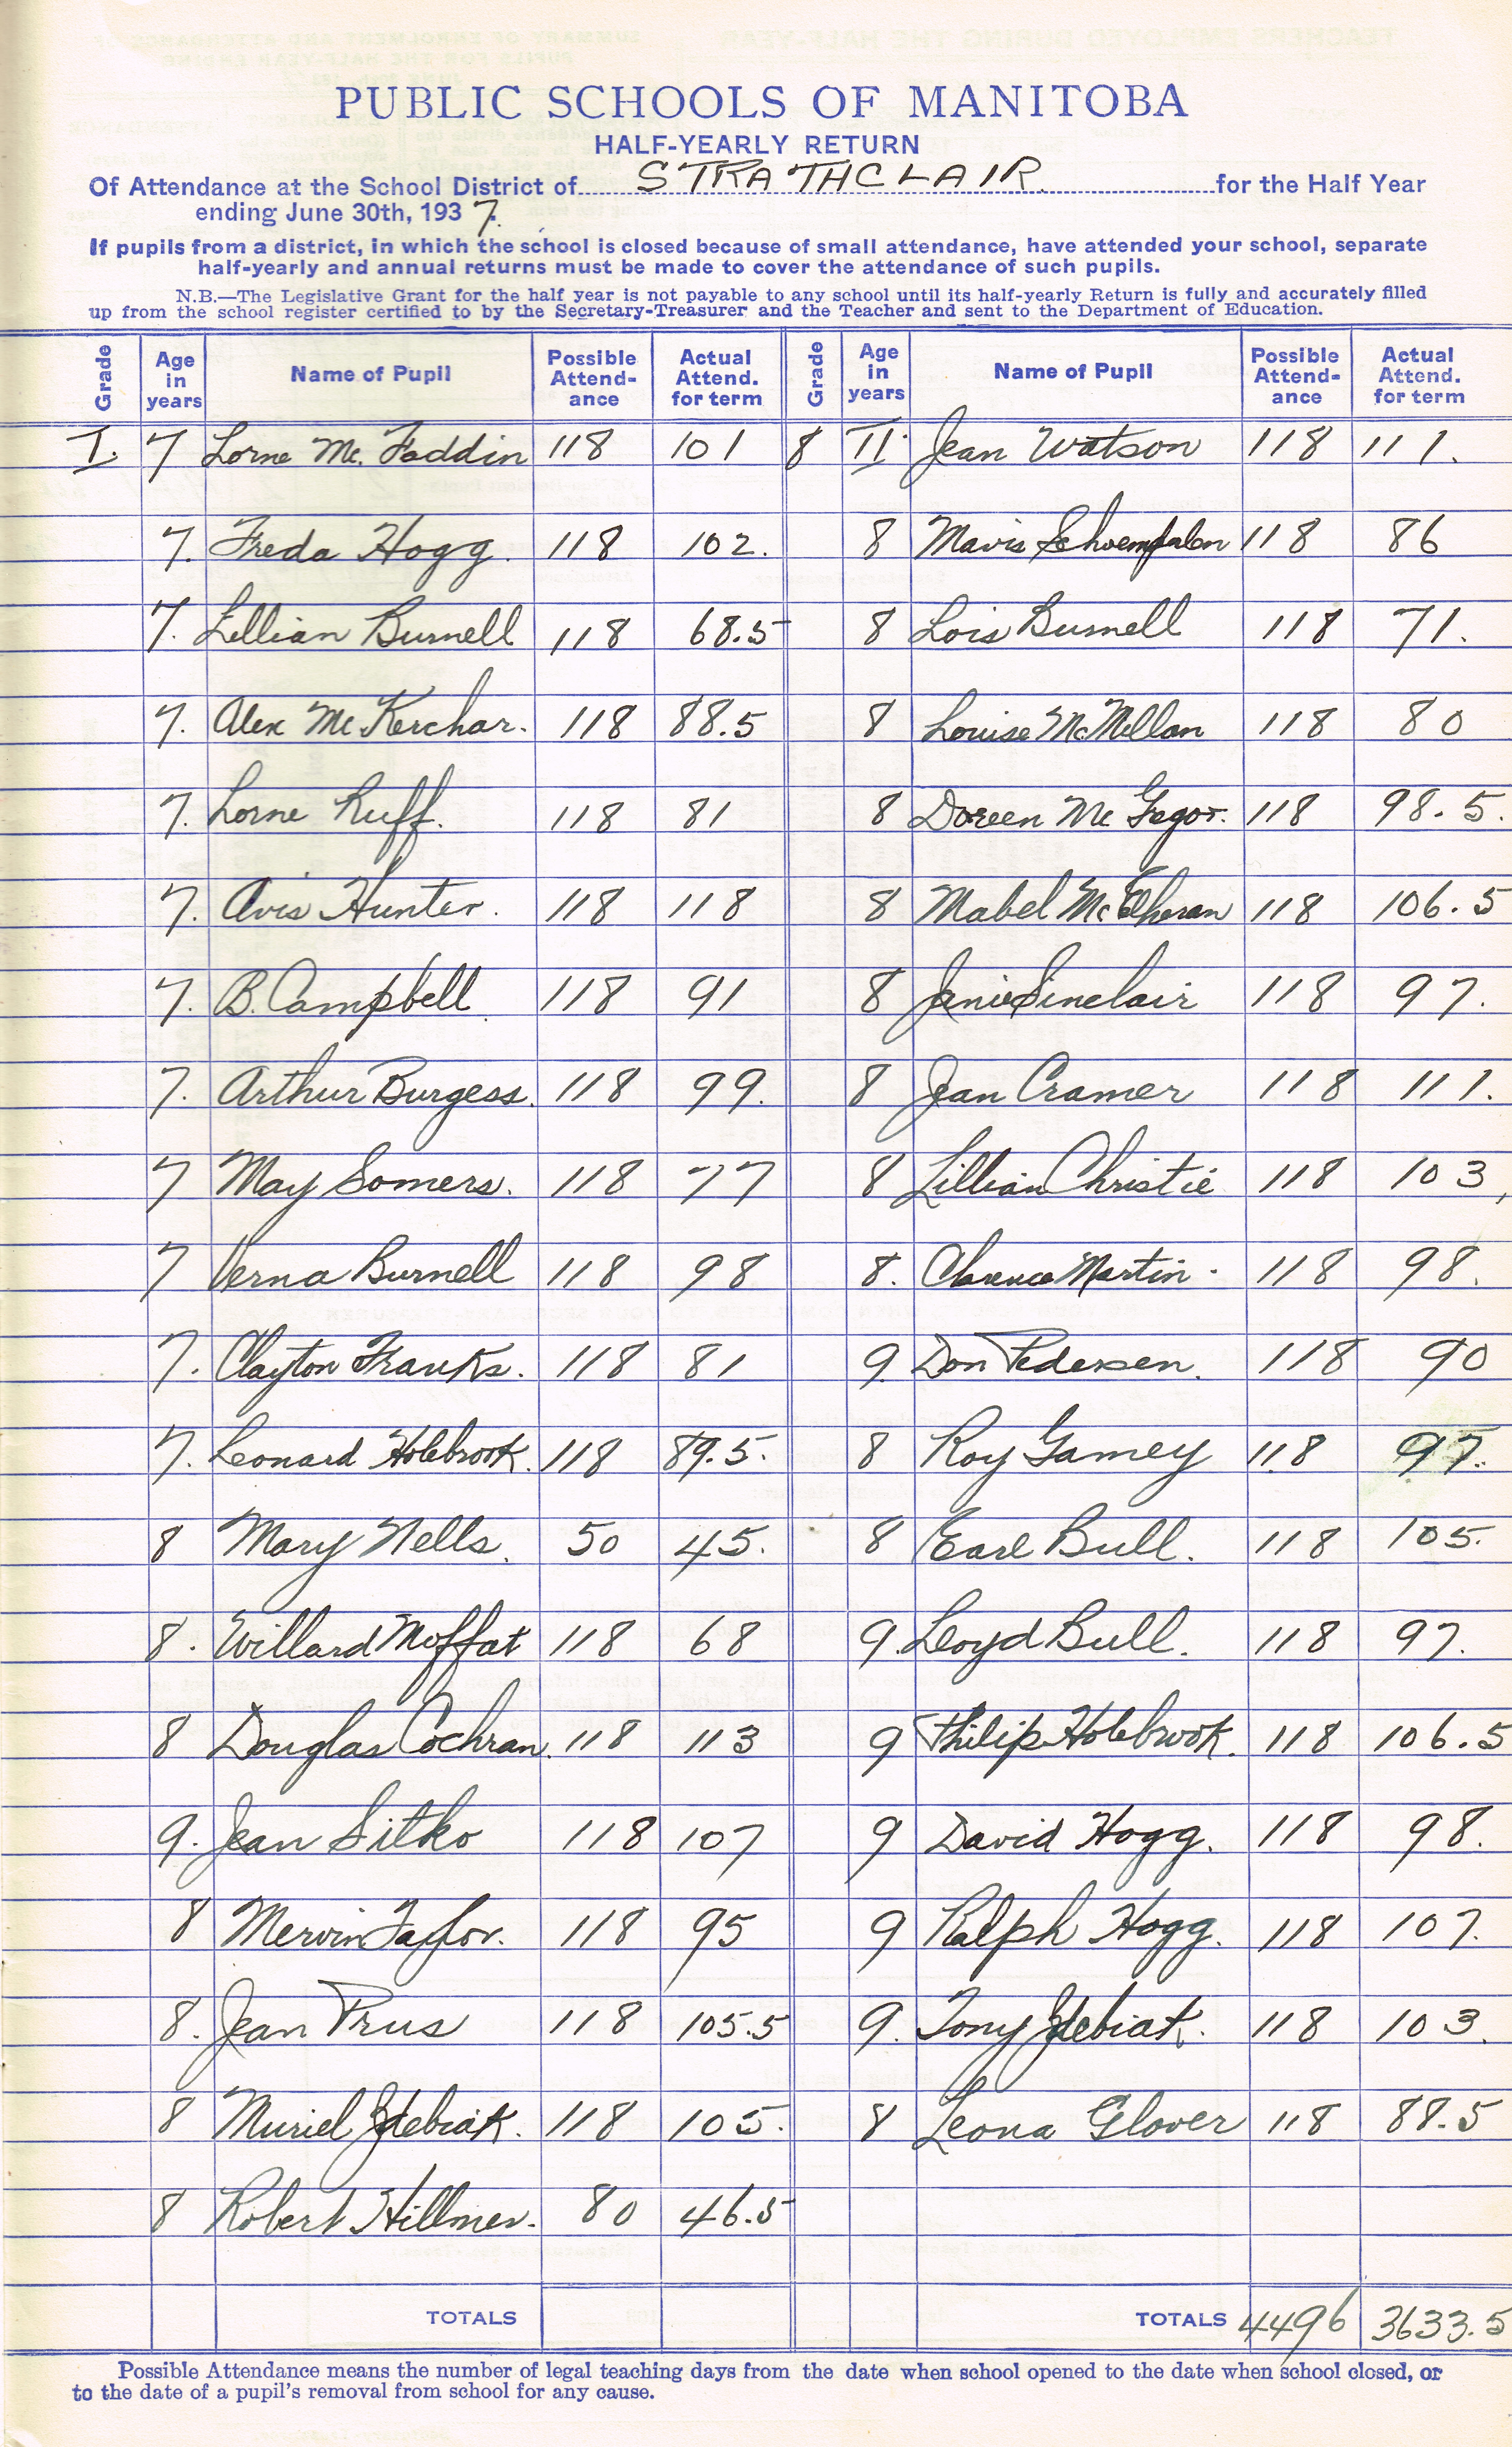 PUBLIC SCHOOLS OF MANITOBA
HALF-YEARLY RETURN
Of Attendance at the School District of STRATHCLAIR for the Half Year
ending June 30th, 1937.
If pupils from a district, in which the school is closed because of small attendance, have attended your school, separate
half-yearly and annual returns must be made to cover the attendance of such pupils.
N.B.—The Legislative Grant for the half year is not payable to any school until its half-yearly Return is fully and accurately filled
up from the school register certified to by the Secretary-Treasurer and the Teacher and sent to the Department of Education.
Grade Age in years Name of Pupil Possible Attend-ance Actual Attend. for term Grade Age in years Name of Pupil Possible Attend-ance Actual Attend. for term
I. 7 Lorne Mc. Faddin 118 101 8 II. Jean Watson 118 111.
7. Freda Hogg. 118 102. 8 Mavis 118 86
7. Lillian Burnell 118 68.5 8 Lois Burnell 118 71.
7. Alex McKerchar. 118 88.5 8 Louise McMillan 118 80
7. Lorne Ruff. 118 81 8 Doreen Mc Gregor. 118 98.5.
7. Avis Hunter. 118 118 8 Mabel McElheran 118 106.5
7. B. Campbell. 118 91 8 Janie Sinclair 118 97.
7. Arthur Burgess. 118 99. 8 Jean Cramer 118 111.
7 May Somers. 118 77 8 Lillian Christie 118 103,
7 Verna Burnell 118 98 8. Clarence Martin. 118 98.
7. Clayton Franks. 118 81 9. Don Pedersen. 118 90
7. Leonard Holebrook. 118 89.5. 8 Roy Gamey 118 97.
8 Mary Wells. 50 45. 8 Earl Bull. 118 105.
8. Willard Moffat 118 68 9. Lloyd Bull. 118 97.
8 Douglas Cochran. 118 113 9 Philip Holebrook. 118 106.5
9. Jean Sitko 118 107 9 David Hogg. 118 98.
8 Mervin Taylor. 118 95 9 Ralph Hogg. 118 107.
8. Jean Prus 118 105.5 9. Tony Zdebiak. 118 103.
8 Muriel Zdebiak. 118 105. 8 Leona Glover 118 88.5
8 Robert Hillmer. 80 46.5
TOTALS TOTALS 4496 3633.5
Possible Attendance means the number of legal teaching days from the date when school opened to the date when school closed, or
to the date of a pupil's removal from school for any cause.